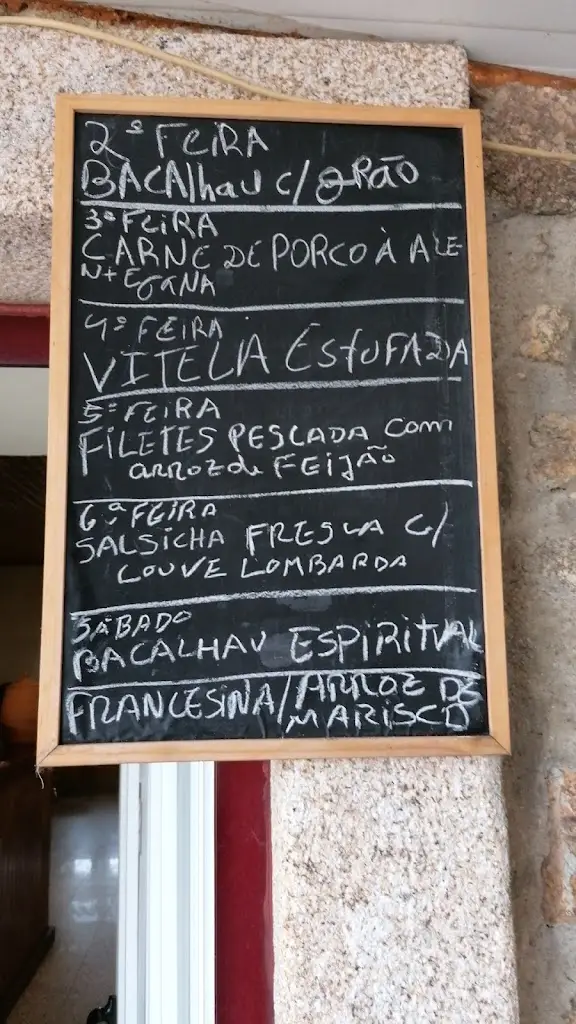 2ª FEIRA
BACAlhaU c/ gRão
3ª FEIRA
CARNE DE PORCO À ALE-
NTEGANA
4ª FEIRA
VITELA ESTUFADA
5ª FEIRA
FILETES PESCADA com
arroz de FEIJÃO
6ª FEIRA
SALSICHA FRESCA C/
COUVE LOMBARDA
SÁBADO
BACALHAU ESPIRITUAL
FRANCESINA/ARROZ DE
MARISCO